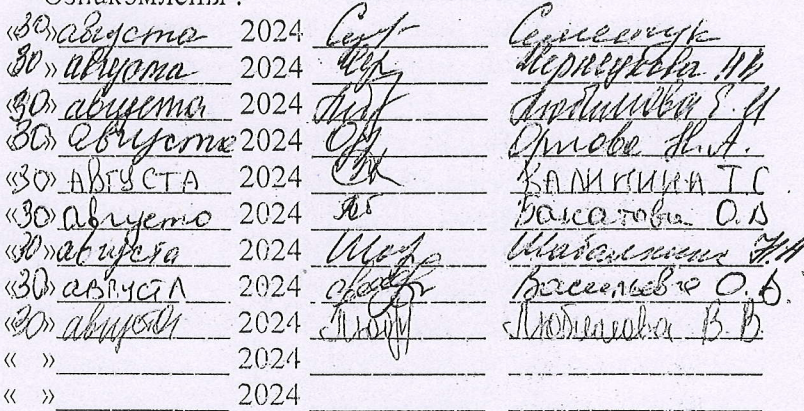 Ознакомлены:
«30» августа 2024 Семенчук
«30» августа 2024
«30» августа 2024 Любимова Е.И
«30» августа 2024 Орлова Н.А.
«30» АВГУСТА 2024 КАЛИНИНА Т С
«30» августа 2024 О.В
«30» августа 2024 Шабалкина Н.Н
«30» августа 2024 Васильева О.В.
«30» августа 2024 Любимова В.В
« » 2024
« » 2024